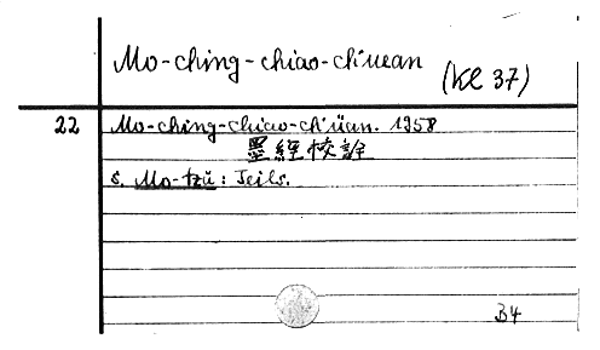 Mo-ching-chiao-ch'uean
(Kl 37)
22 Mo-ching-chiao-ch'üan. 1958
墨經校詮
s. Mo-tzŭ: Teils.
B4